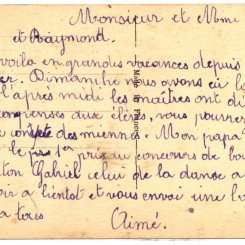 Monsieur et Mme
et Raymond.
voila en grandes vacances depuis
er. Dimanche nous avons eu l
l'après midi les maîtres ont d
aux élèves, vous pouvez
des miennes. Mon papa
le 1er prix au concours de bo
ton Gabriel celui de la danse a
oir a bientot et vous envoi une l
a tous Aimé.
Made in France